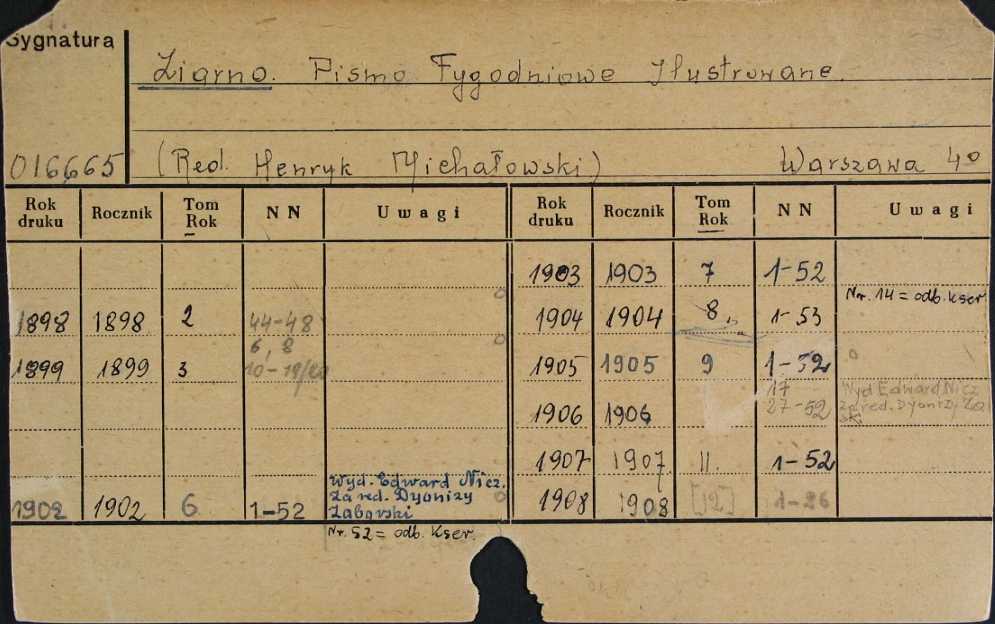 Sygnatura
Ziarno. Pismo Tygodniowe Ilustrowane.
016665 (Red. Henryk Michałowski) Warszawa 4°
Rok druku Rocznik Tom Rok NN Uwagi Rok druku Rocznik Tom Rok NN Uwagi
1903 1903 7 1-52
Nr. 14 = odb. kser.
1898 1898 2 44-48 1904 1904 8. 1-53
6, 8
1899 1899 3 10-19/20 1905 1905 9 1-52
17
1906 1906 27-52
Wyd Edward Nicz
za red. Dyonizy Za
1907 1907 11. 1-52
Wyd. Edward Nicz.
za red. Dyonizy
Zaborski
1902 1902 6 1-52 1908 1908 [12] 1-26
Nr. 52 = odb. kser.